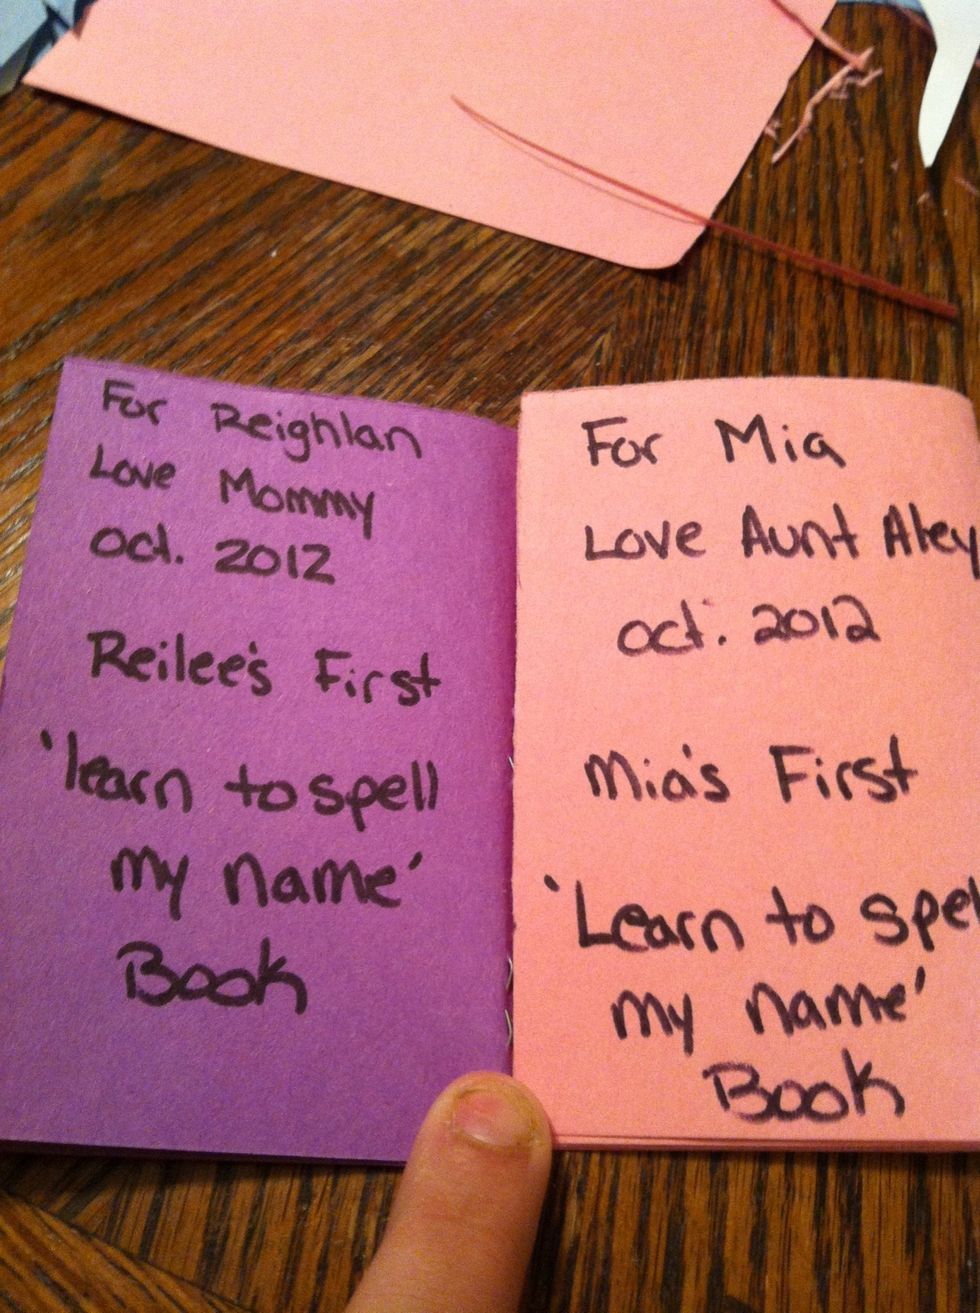 For Reighlan
Love Mommy
Oct. 2012
Reilee's First
'learn to spell
my name'
Book
For Mia
Love Aunt Aley
Oct. 2012
Mia's First
'Learn to spel
my name'
Book